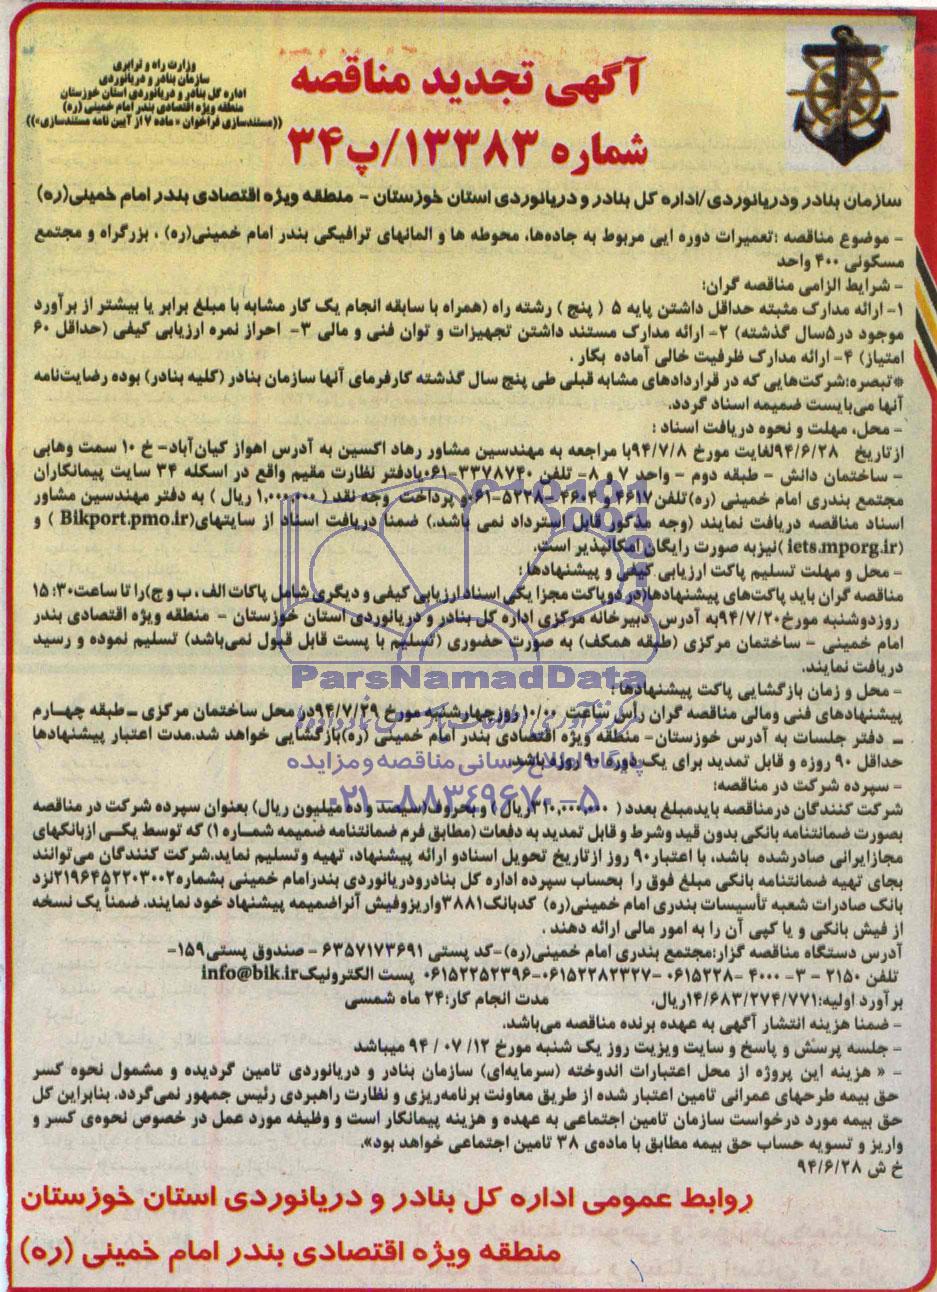 وزارت راه و ترابری
سازمان بنادر و دریانوردی
اداره کل بنادر و دریانوردی استان خوزستان
منطقه ویژه اقتصادی بندر امام خمینی (ره)
((مستندسازی فراخوان « ماده ۷ از آیین نامه مستندسازی»))
آگهی تجدید مناقصه
شماره ۱۳۳۸۳/پ۳۴
سازمان بنادر ودریانوردی/اداره کل بنادر و دریانوردی استان خوزستان - منطقه ویژه اقتصادی بندر امام خمینی(ره)
- موضوع مناقصه :تعمیرات دوره ایی مربوط به جاده‌ها، محوطه ها و المانهای ترافیکی بندر امام خمینی(ره) ، بزرگراه و مجتمع
مسکونی ۴۰۰ واحد
- شرایط الزامی مناقصه گران:
۱- ارائه مدارک مثبته حداقل داشتن پایه ۵ ( پنج ) رشته راه (همراه با سابقه انجام یک کار مشابه با مبلغ برابر یا بیشتر از برآورد
موجود در۵سال گذشته) ۲- ارائه مدارک مستند داشتن تجهیزات و توان فنی و مالی ۳- احراز نمره ارزیابی کیفی (حداقل ۶۰
امتیاز) ۴- ارائه مدارک ظرفیت خالی آماده بکار .
*تبصره:شرکت‌هایی که در قراردادهای مشابه قبلی طی پنج سال گذشته کارفرمای آنها سازمان بنادر (کلیه بنادر) بوده رضایت‌نامه
آنها می‌بایست ضمیمه اسناد گردد.
- محل، مهلت و نحوه دریافت اسناد :
ازتاریخ ۹۴/۶/۲۸لغایت مورخ ۹۴/۷/۸با مراجعه به مهندسین مشاور رهاد اکسین به آدرس اهواز کیان‌آباد- خ ۱۰ سمت وهابی
- ساختمان دانش - طبقه دوم - واحد ۷ و ۸- تلفن ۳۳۷۸۷۴۰-۰۶۱یادفتر نظارت مقیم واقع در اسکله ۳۴ سایت پیمانکاران
مجتمع بندری امام خمینی (ره)تلفن۴۶۱۷ و ۴۶۰۴-۵۲۲۸-۰۶۱و پرداخت وجه نقد ( ۱,۰۰۰,۰۰۰ ریال ) به دفتر مهندسین مشاور
اسناد مناقصه دریافت نمایند (وجه مذکور قابل استرداد نمی باشد.) ضمنا دریافت اسناد از سایتهای(Bikport.pmo.ir ) و
(iets.mporg.ir )نیزبه صورت رایگان امکانپذیر است.
- محل و مهلت تسلیم پاکت ارزیابی کیفی و پیشنهادها :
مناقصه گران باید پاکت‌های پیشنهادها(در دوپاکت مجزا یکی اسناد ارزیابی کیفی و دیگری شامل پاکات الف ، ب و ج)را تا ساعت۱۵:۳۰
روزدوشنبه مورخ۹۴/۷/۲۰به آدرس دبیرخانه مرکزی اداره کل بنادر و دریانوردی استان خوزستان - منطقه ویژه اقتصادی بندر
امام خمینی - ساختمان مرکزی (طبقه همکف) به صورت حضوری (تسلیم با پست قابل قبول نمی‌باشد) تسلیم نموده و رسید
دریافت نمایند.
- محل و زمان بازگشایی پاکت پیشنهادها :
پیشنهادهای فنی ومالی مناقصه گران رأس ساعت ۱۰/۰۰ روزچهارشنبه مورخ ۹۴/۷/۲۹در محل ساختمان مرکزی ـ طبقه چهارم
ـ دفتر جلسات به آدرس خوزستان- منطقه ویژه اقتصادی بندر امام خمینی (ره)بازگشایی خواهد شد.مدت اعتبار پیشنهادها
حداقل ۹۰ روزه و قابل تمدید برای یک دوره ۹۰ روزه باشد.
- سپرده شرکت در مناقصه:
شرکت کنندگان درمناقصه بایدمبلغ بعدد ( ۳۱۰,۰۰۰,۰۰۰ریال) و بحروف(سیصد و ده میلیون ریال) بعنوان سپرده شرکت در مناقصه
بصورت ضمانتنامه بانکی بدون قید وشرط و قابل تمدید به دفعات (مطابق فرم ضمانتنامه ضمیمه شماره ۱) که توسط یکی ازبانکهای
مجازایرانی صادرشده باشد، با اعتبار۹۰ روز ازتاریخ تحویل اسنادو ارائه پیشنهاد، تهیه وتسلیم نماید.شرکت کنندگان می‌توانند
بجای تهیه ضمانتنامه بانکی مبلغ فوق را بحساب سپرده اداره کل بنادرودریانوردی بندرامام خمینی بشماره۲۱۹۶۴۵۲۲۰۳۰۰۲نزد
بانک صادرات شعبه تأسیسات بندری امام خمینی(ره) کدبانک۳۸۸۱واریزوفیش آنراضمیمه پیشنهاد خود نمایند. ضمناً یک نسخه
از فیش بانکی و یا کپی آن را به امور مالی ارائه دهند .
آدرس دستگاه مناقصه گزار:مجتمع بندری امام خمینی(ره)-کد پستی ۶۳۵۷۱۷۳۶۹۱ - صندوق پستی۱۵۹-
تلفن ۲۱۵۰ - ۳- ۴۰۰۰ -۰۶۱۵۲۲۸ -۰۶۱۵۲۲۸۲۳۲۷-۰۶۱۵۲۲۵۲۳۹۶ پست الکترونیکinfo@bik.ir
برآورد اولیه:۱۴/۶۸۳/۲۷۴/۷۷۱ریال. مدت انجام کار:۲۴ ماه شمسی
- ضمنا هزینه انتشار آگهی به عهده برنده مناقصه می‌باشد.
- جلسه پرسش و پاسخ و سایت ویزیت روز یک شنبه مورخ ۱۲/ ۰۷ / ۹۴ میباشد
- « هزینه این پروژه از محل اعتبارات اندوخته (سرمایه‌ای) سازمان بنادر و دریانوردی تامین گردیده و مشمول نحوه کسر
حق بیمه طرحهای عمرانی تامین اعتبار شده از طریق معاونت برنامه‌ریزی و نظارت راهبردی رئیس جمهور نمی‌گردد. بنابراین کل
حق بیمه مورد درخواست سازمان تامین اجتماعی به عهده و هزینه پیمانکار است و وظیفه مورد عمل در خصوص نحوه‌ی کسر و
واریز و تسویه حساب حق بیمه مطابق با ماده‌ی ۳۸ تامین اجتماعی خواهد بود».
خ ش ۹۴/۶/۲۸
روابط عمومی اداره کل بنادر و دریانوردی استان خوزستان
منطقه ویژه اقتصادی بندر امام خمینی (ره)
ParsNamadData
پایگاه اطلاع رسانی مناقصه و مزایده
۰۲۱-۸۸۳۴۹۶۷۰-۵